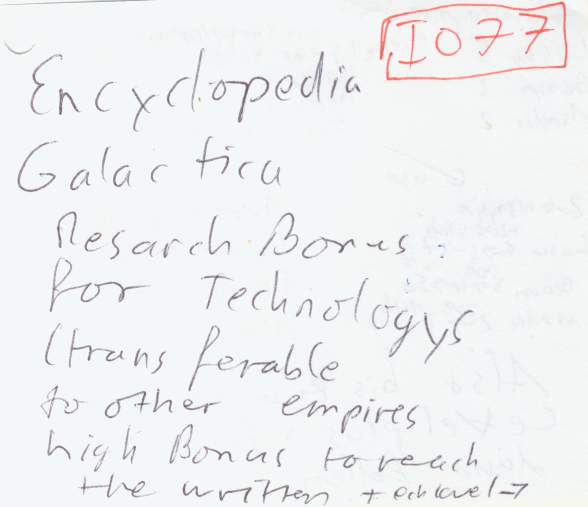 IO77
Encyclopedia
Galactica
Resarch Bonus
for Technologys
(transferable
to other empires
high Bonus to reach
the written techlevel→